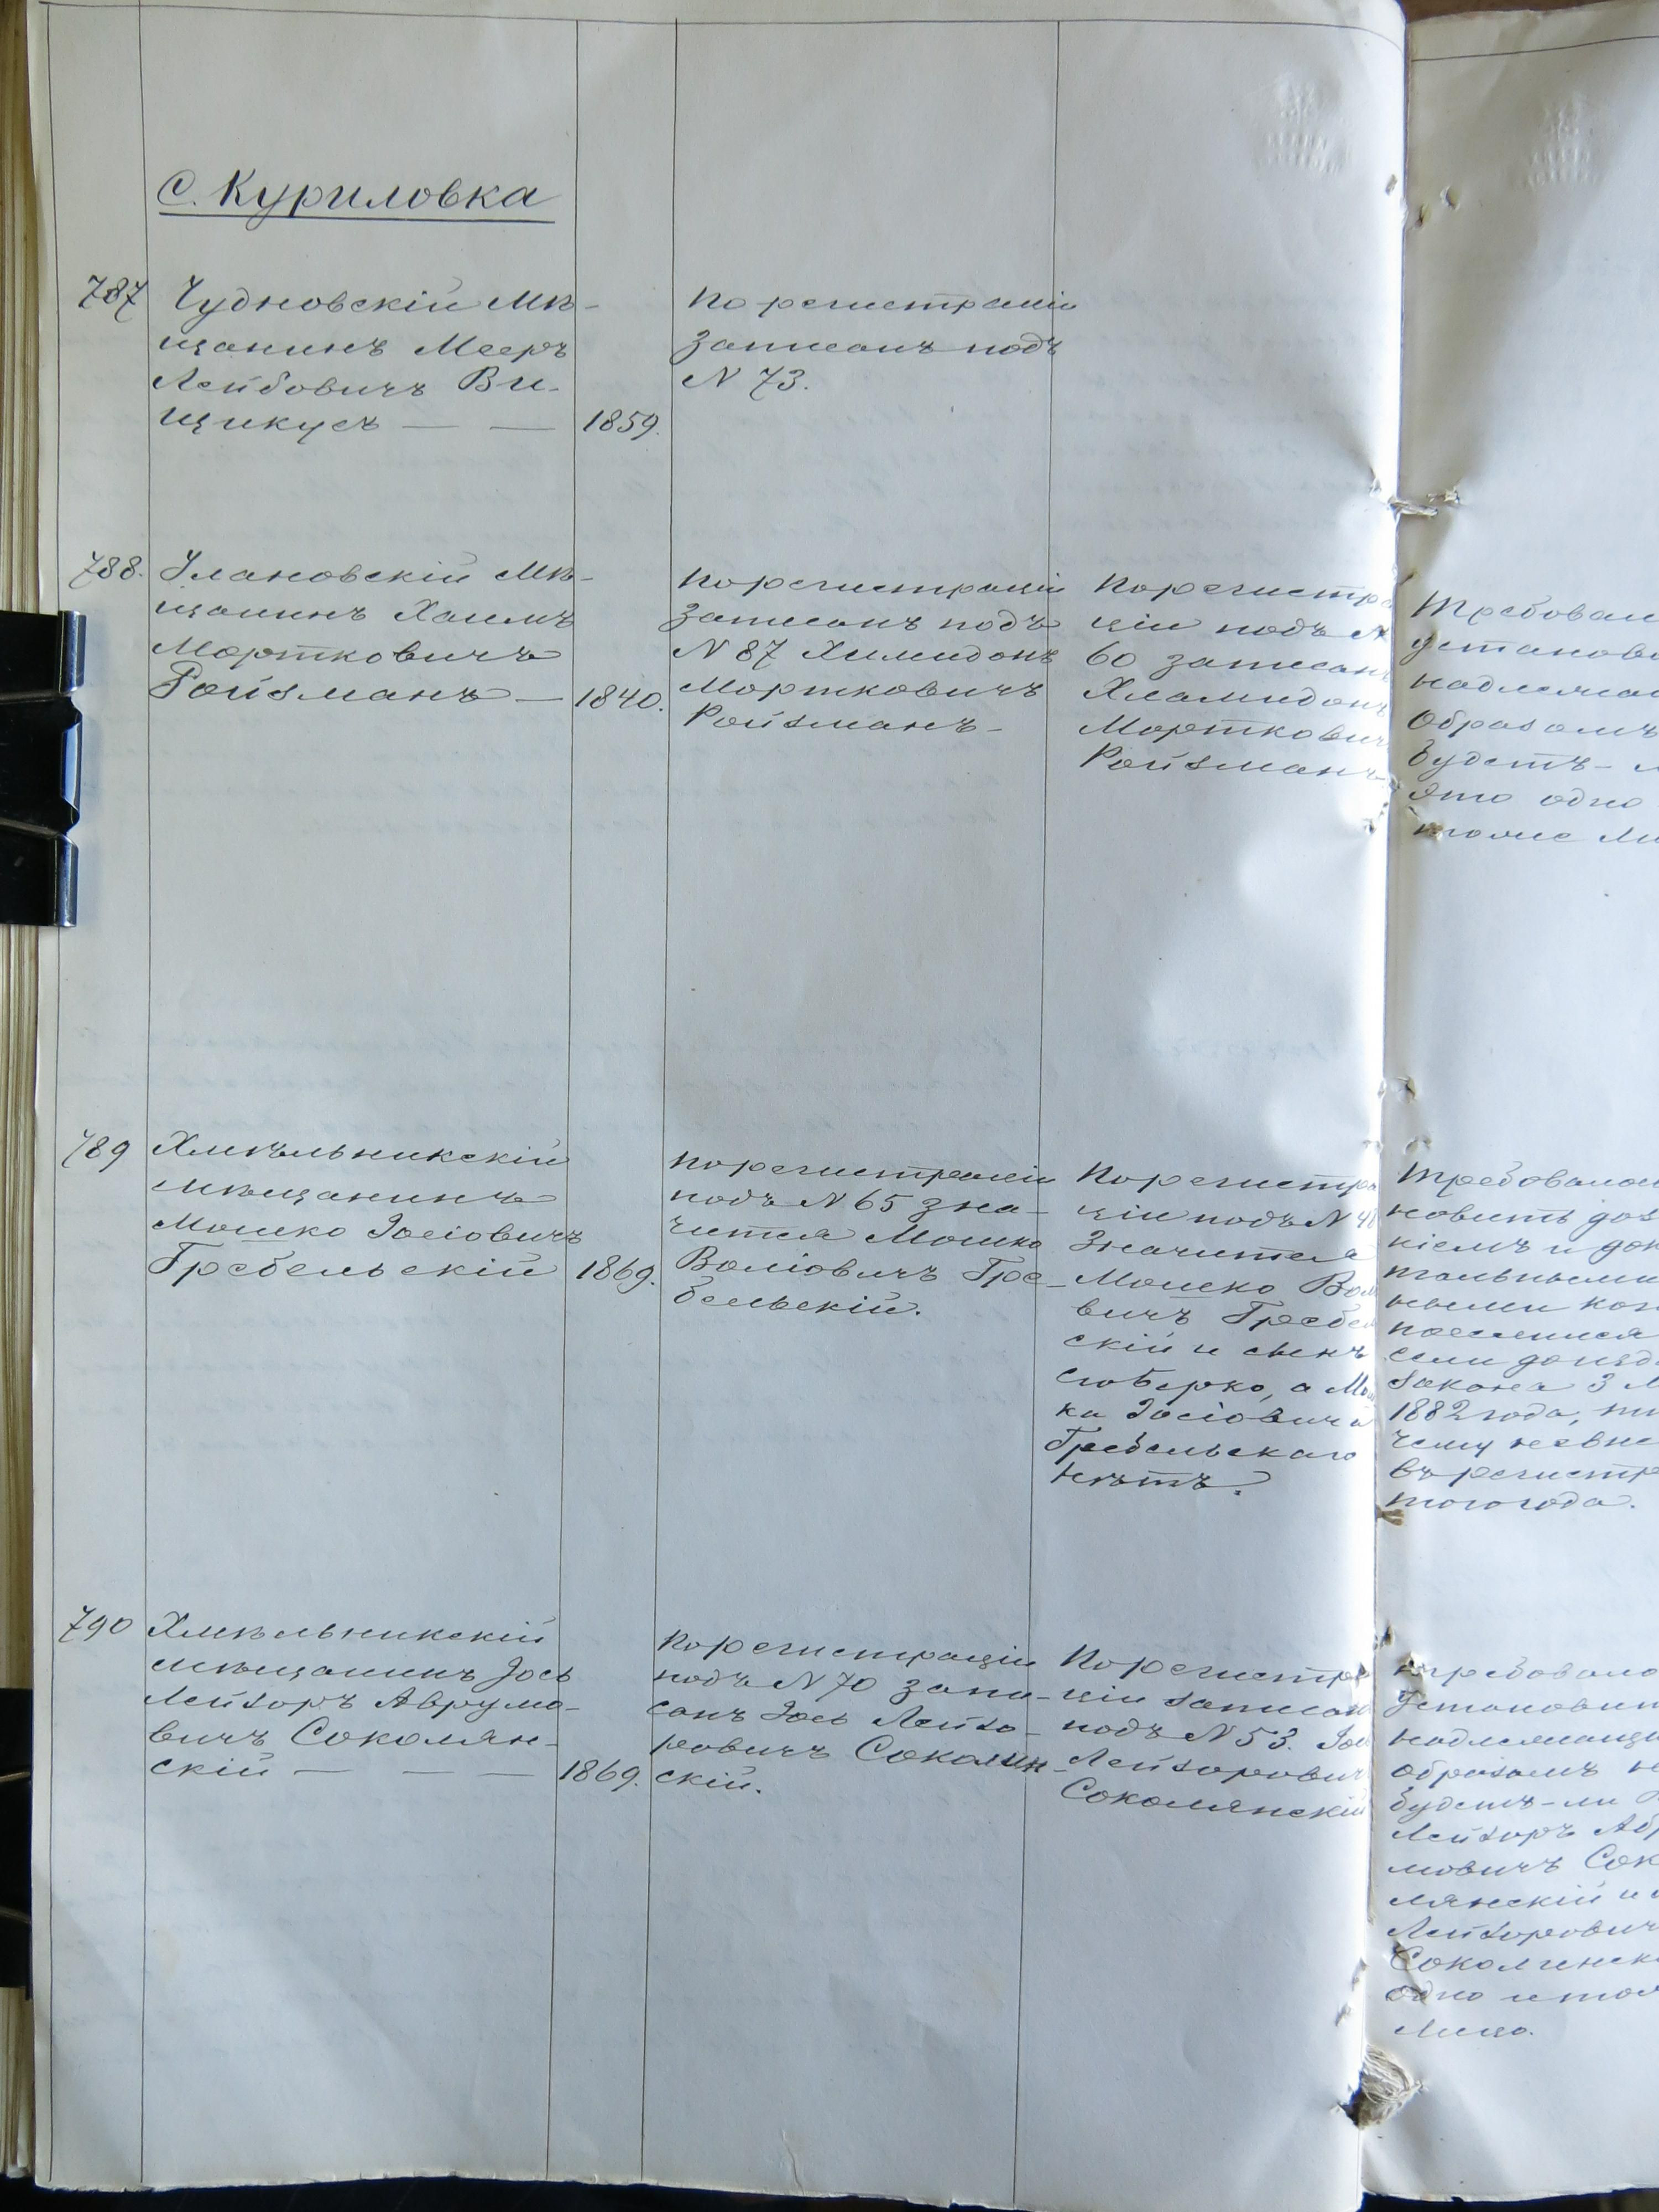 с. Куриловка
787
Чудновскій мѣ-
щанинъ Мееръ
Лейбовичъ Ви-
щикусъ — —
1859.
По регистраціи
записанъ подъ
N 73.
788.
Улановскій мѣ-
щанинъ Хаимъ
Мортковичъ
Ройзманъ —
1840.
По регистраціи
записанъ подъ
N 87 Химидонъ
Мортковичъ
Ройзманъ-
По регистра
ціи подъ N
60 записанъ
Хламидонъ
Мортковичъ
Ройзманъ
Требовал
установи
надлежащ
образомъ
будетъ-л
это одно
тоже ли
789
Хмѣльникскій
мѣщанинъ
Мошко Іосіовичъ
Гребельскій
1869.
По регистраціи
подъ N 65 зна-
чится Мошко
Воліовичъ Гре-
бельскій.
По регистра
ціи подъ N 4
значится
Мошко Вол
вичъ Гребел
скій и сынъ
Сюберко, а Мош
ка Іосіовича
Гребельскаго
нѣтъ.
Требовалось
новить доз
ніемъ и док
тальными
ными кон
поселился
сели до изд
закона 3 М
1882 года, по
чему не вне
въ регистр
того года.
790
Хмѣльникскій
мѣщанинъ Іось
Лейзоръ Аврумо-
вичъ Соколян-
скій — — —
1869.
По регистраціи
подъ N 70 запи-
санъ Іось Лейзо-
ровичъ Соколян-
скій.
По регистра
ціи записан
подъ N 53. Іос
Лейзорович
Соколянскій
Требовало
установит
надлежащи
образомъ не
будетъ-ли
Лейзоръ Аб
мовичъ Сок
лянскій и
Лейзорович
Соколянск
одно и тож
лицо.